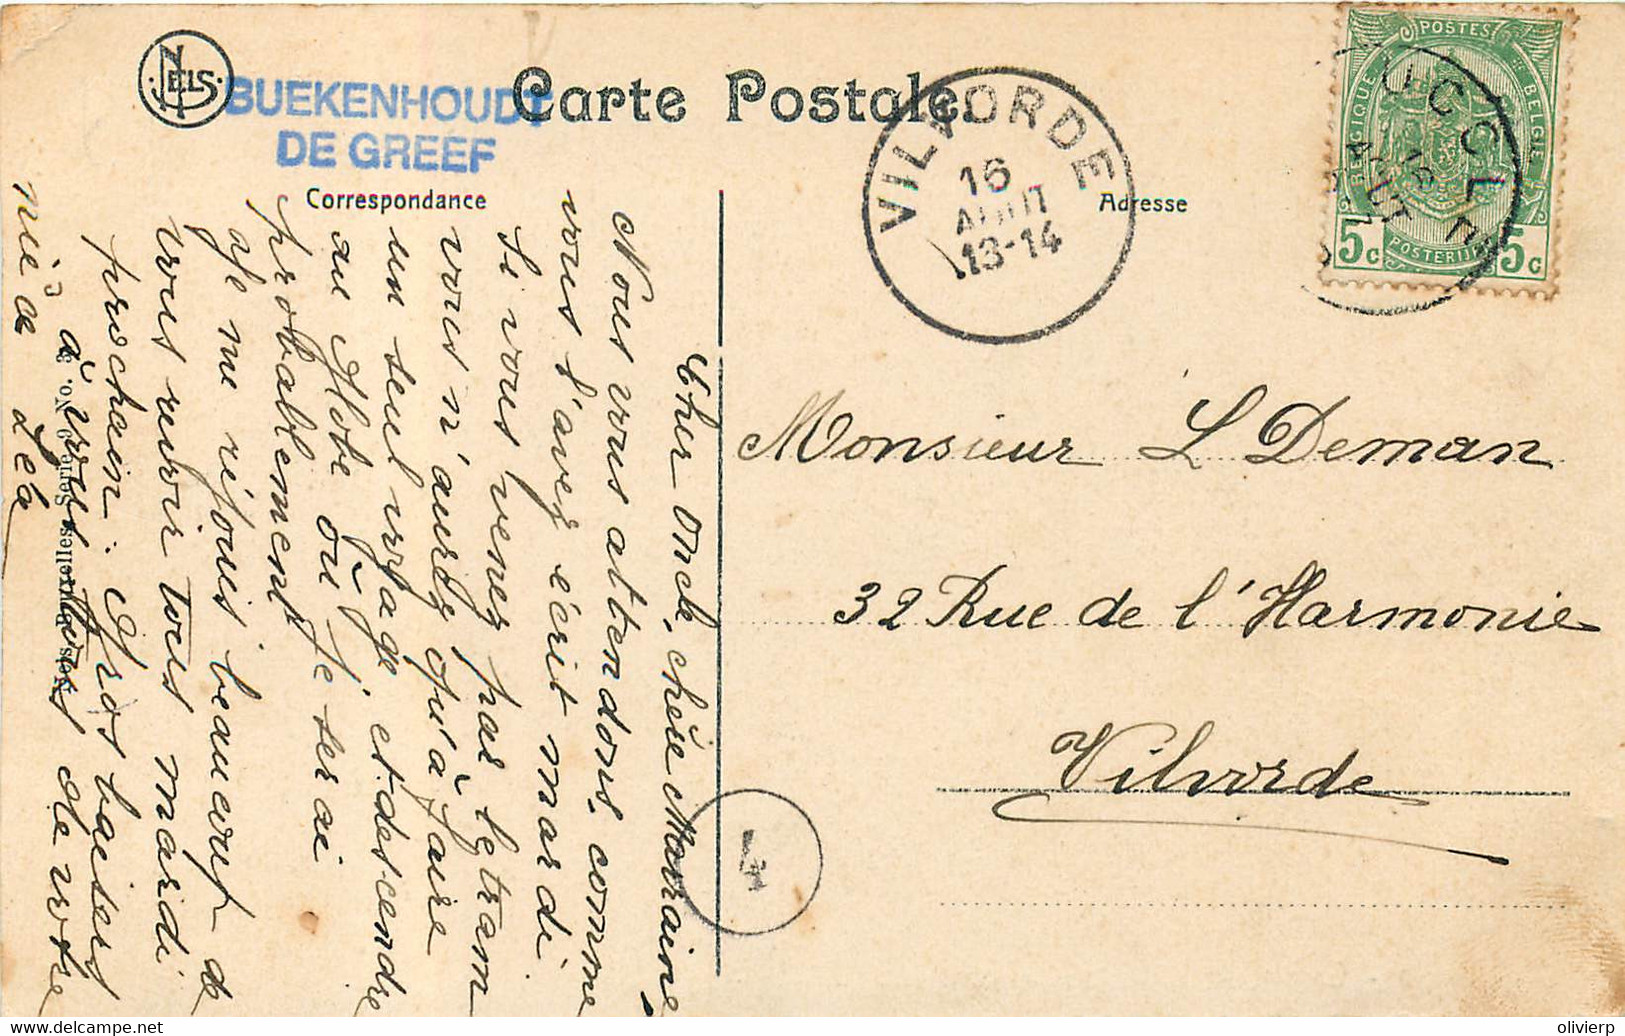 NELS
BUEKENHOUDT
DE GREEF
Carte Postale
Correspondance
Adresse
VILVORDE
16
AOUT
13-14
UCCLE
16
AOUT
POSTES
BELGIQUE
BELGIE
POSTERIJEN
5c
5c
Cher Oncle, chère Marraine,
Nous vous attendons comme
vous l'avez écrit mardi
Si vous venez par le tram
vous n'aurez qu'à faire
un seul voyage et descendre
au Globe où je serai
probablement
Je me réjouis beaucoup de
vous revoir tous mardi
prochain. Gros baisers
à vous tous de votre
nièce Léa
Monsieur L Deman
32 Rue de l'Harmonie
Vilvorde
4
Bruxelles, Série No.
olivierp